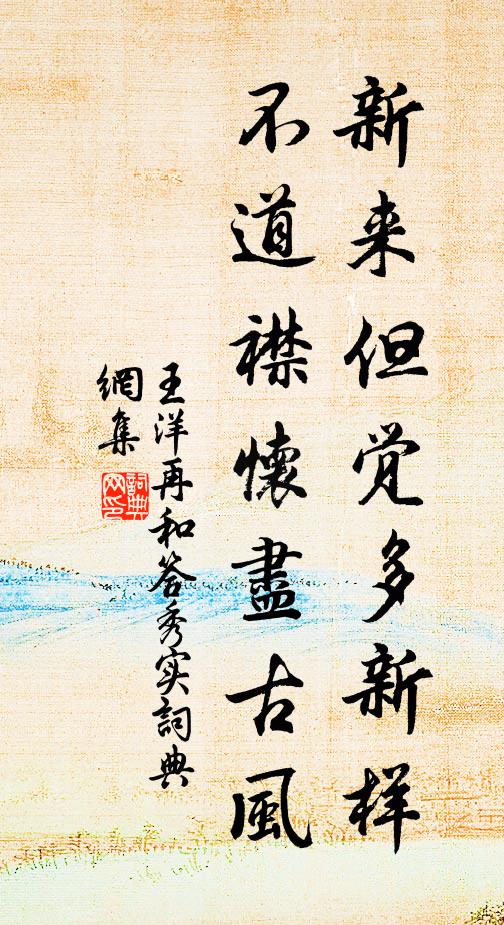 新来但觉多新样
不道襟懷盡古風
王洋再和答秀实詞典
網集
詞典
网印